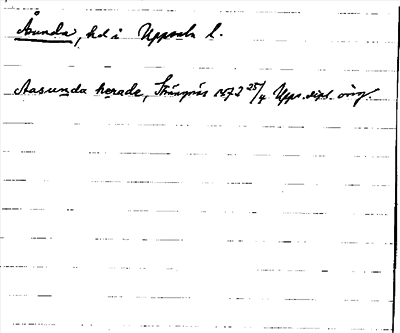 Åsunda, hd i Uppsala l.
Aasunda herade, Strängnäs 1572 25/4 Upps. dipl. orig.